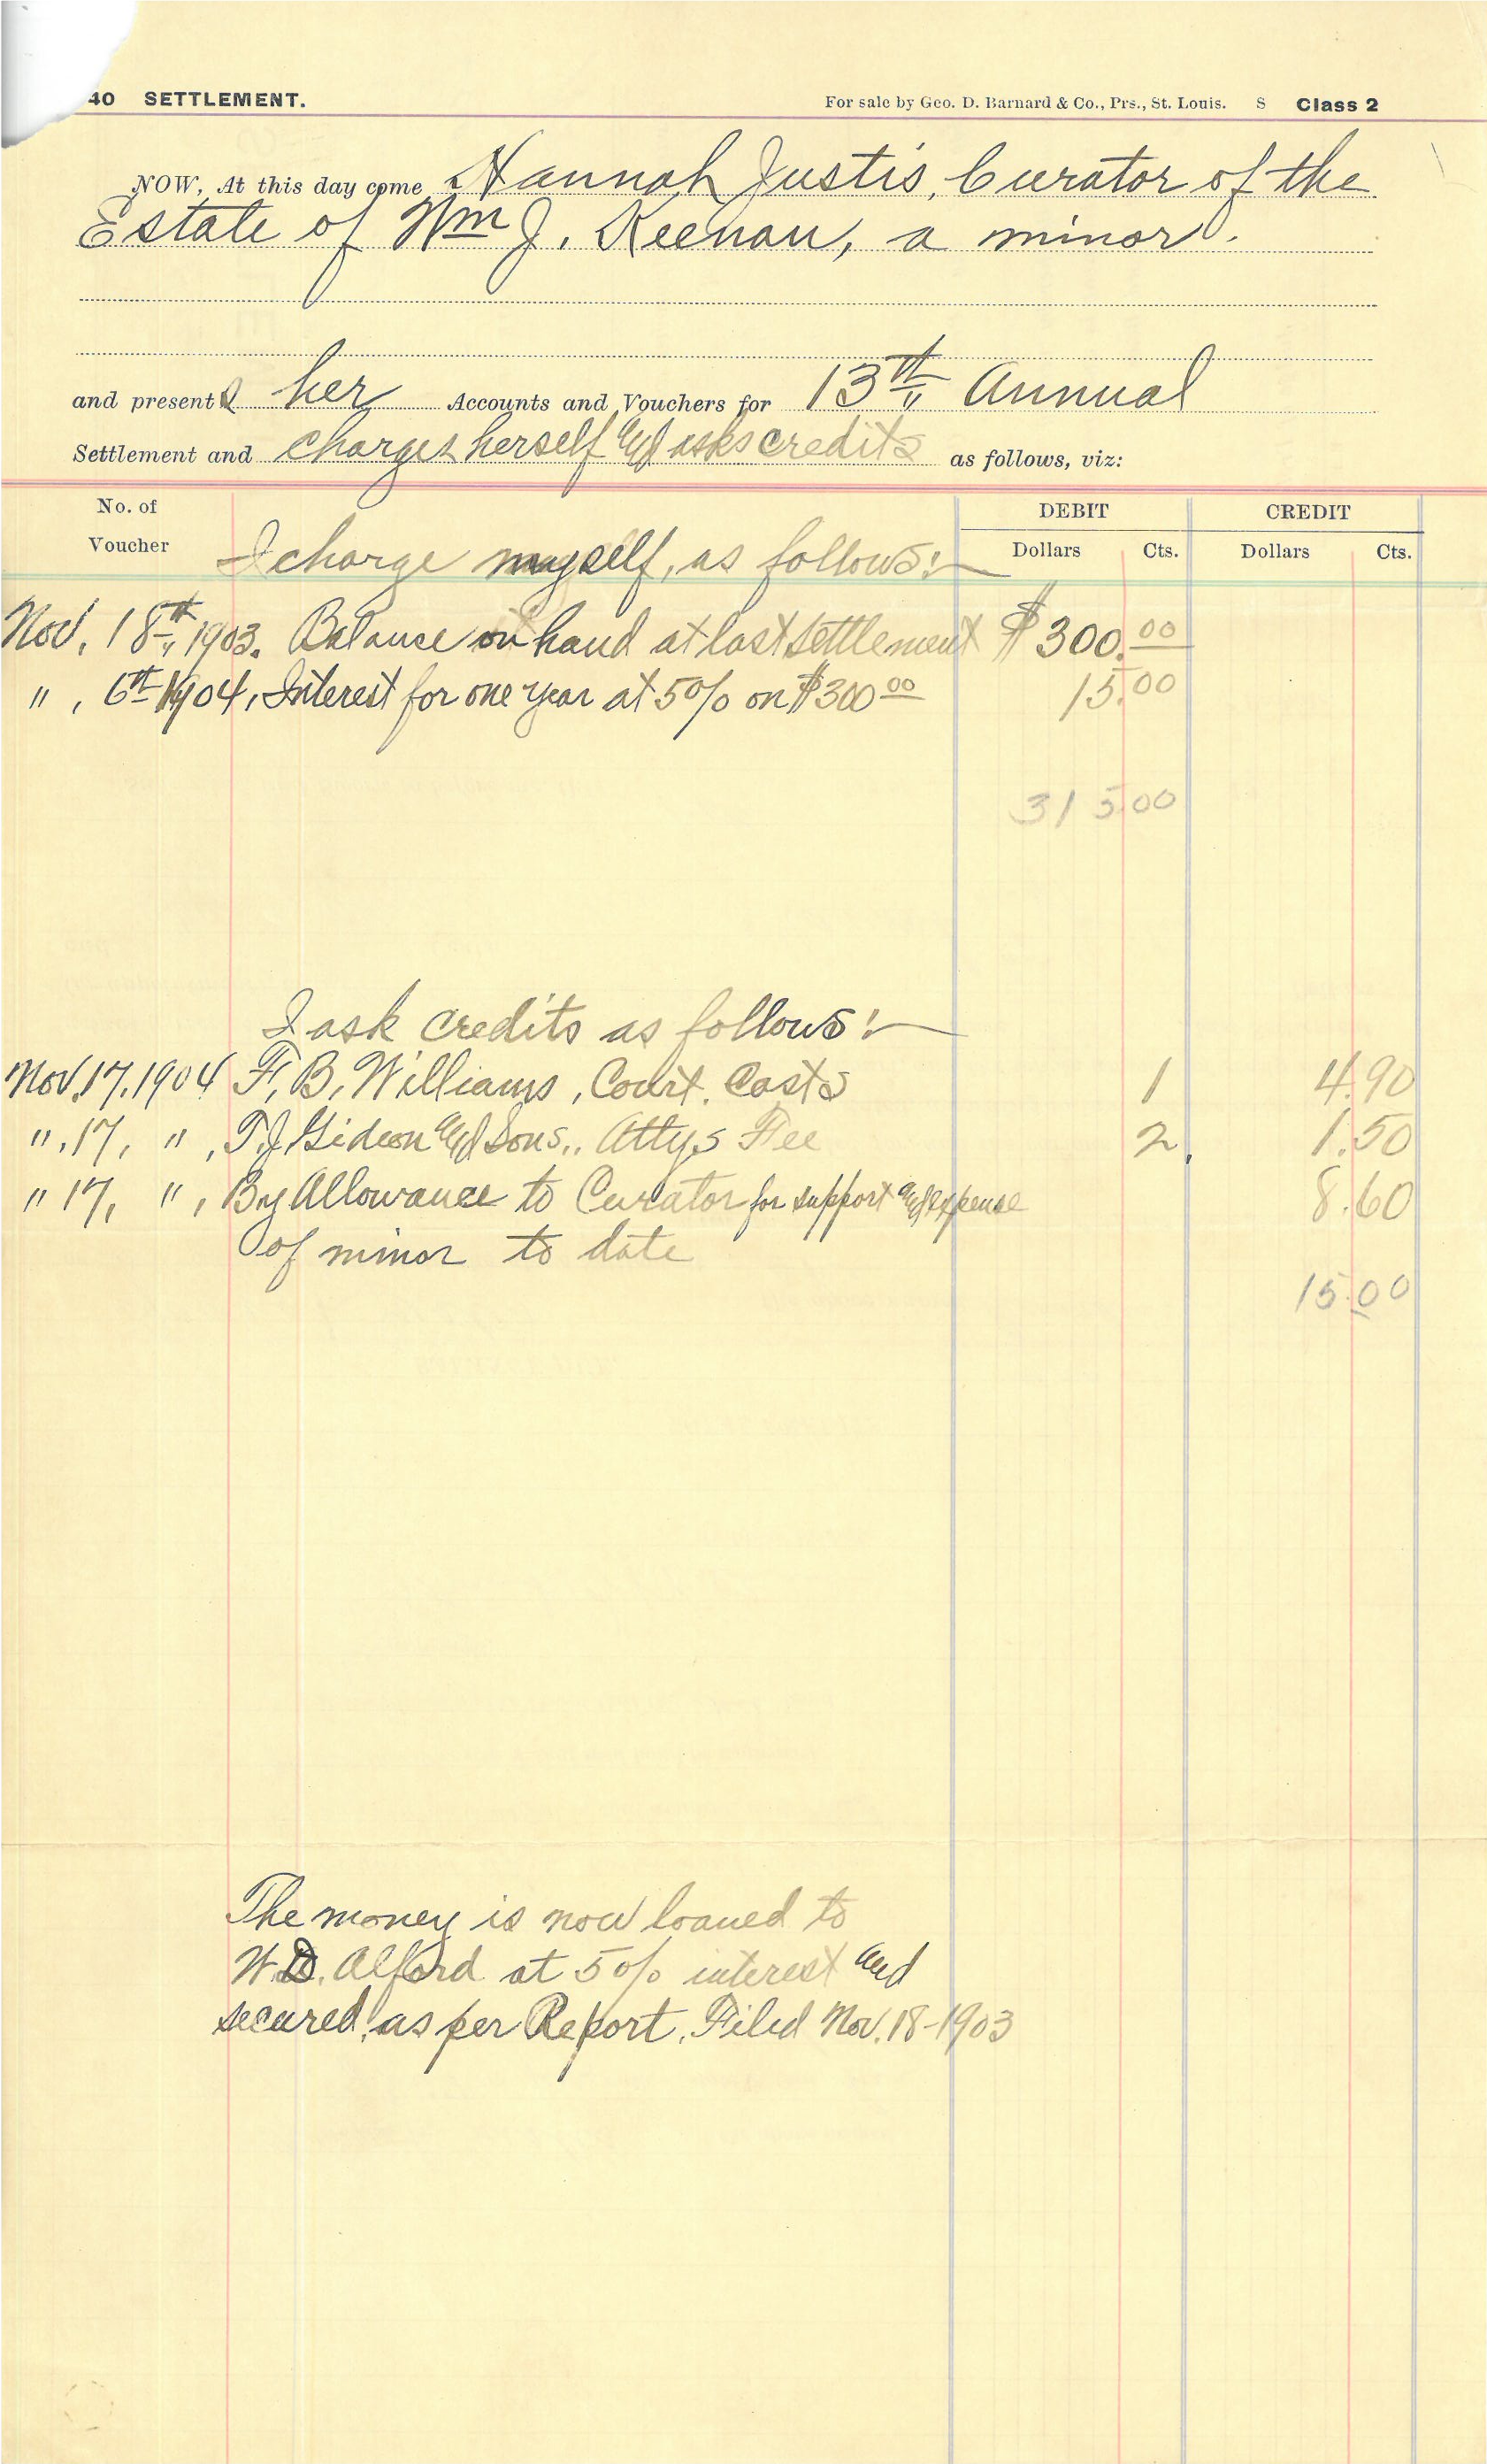 40 SETTLEMENT. For sale by Geo. D. Barnard & Co., Prs., St. Louis. S Class 2
NOW, At this day come Hannah Justis, Curator of the
Estate of Wm J. Keenan, a minor.
and presents her Accounts and Vouchers for 13th, Annual
Settlement and charges herself and asks credits as follows, viz:
No. of Voucher DEBIT CREDIT
Dollars Cts. Dollars Cts.
I charge myself, as follows:-
Nov. 18th, 1903. Balance on hand at last settlement $300.00
" , 6th 1904, Interest for one year at 5% on $300 00 15.00
315.00
I ask credits as follows:-
Nov. 17, 1904 F. B. Williams, Court. Costs 1 4.90
". 17, " , T. J. Gideon and Sons,. Attys Fee 2 1.50
" 17, " , By Allowance to Curator for support and expense 8.60
of minor to date
15.00
The money is now loaned to
W. D. Alford at 5% interest and
secured, as per Report, Filed Nov. 18-1903